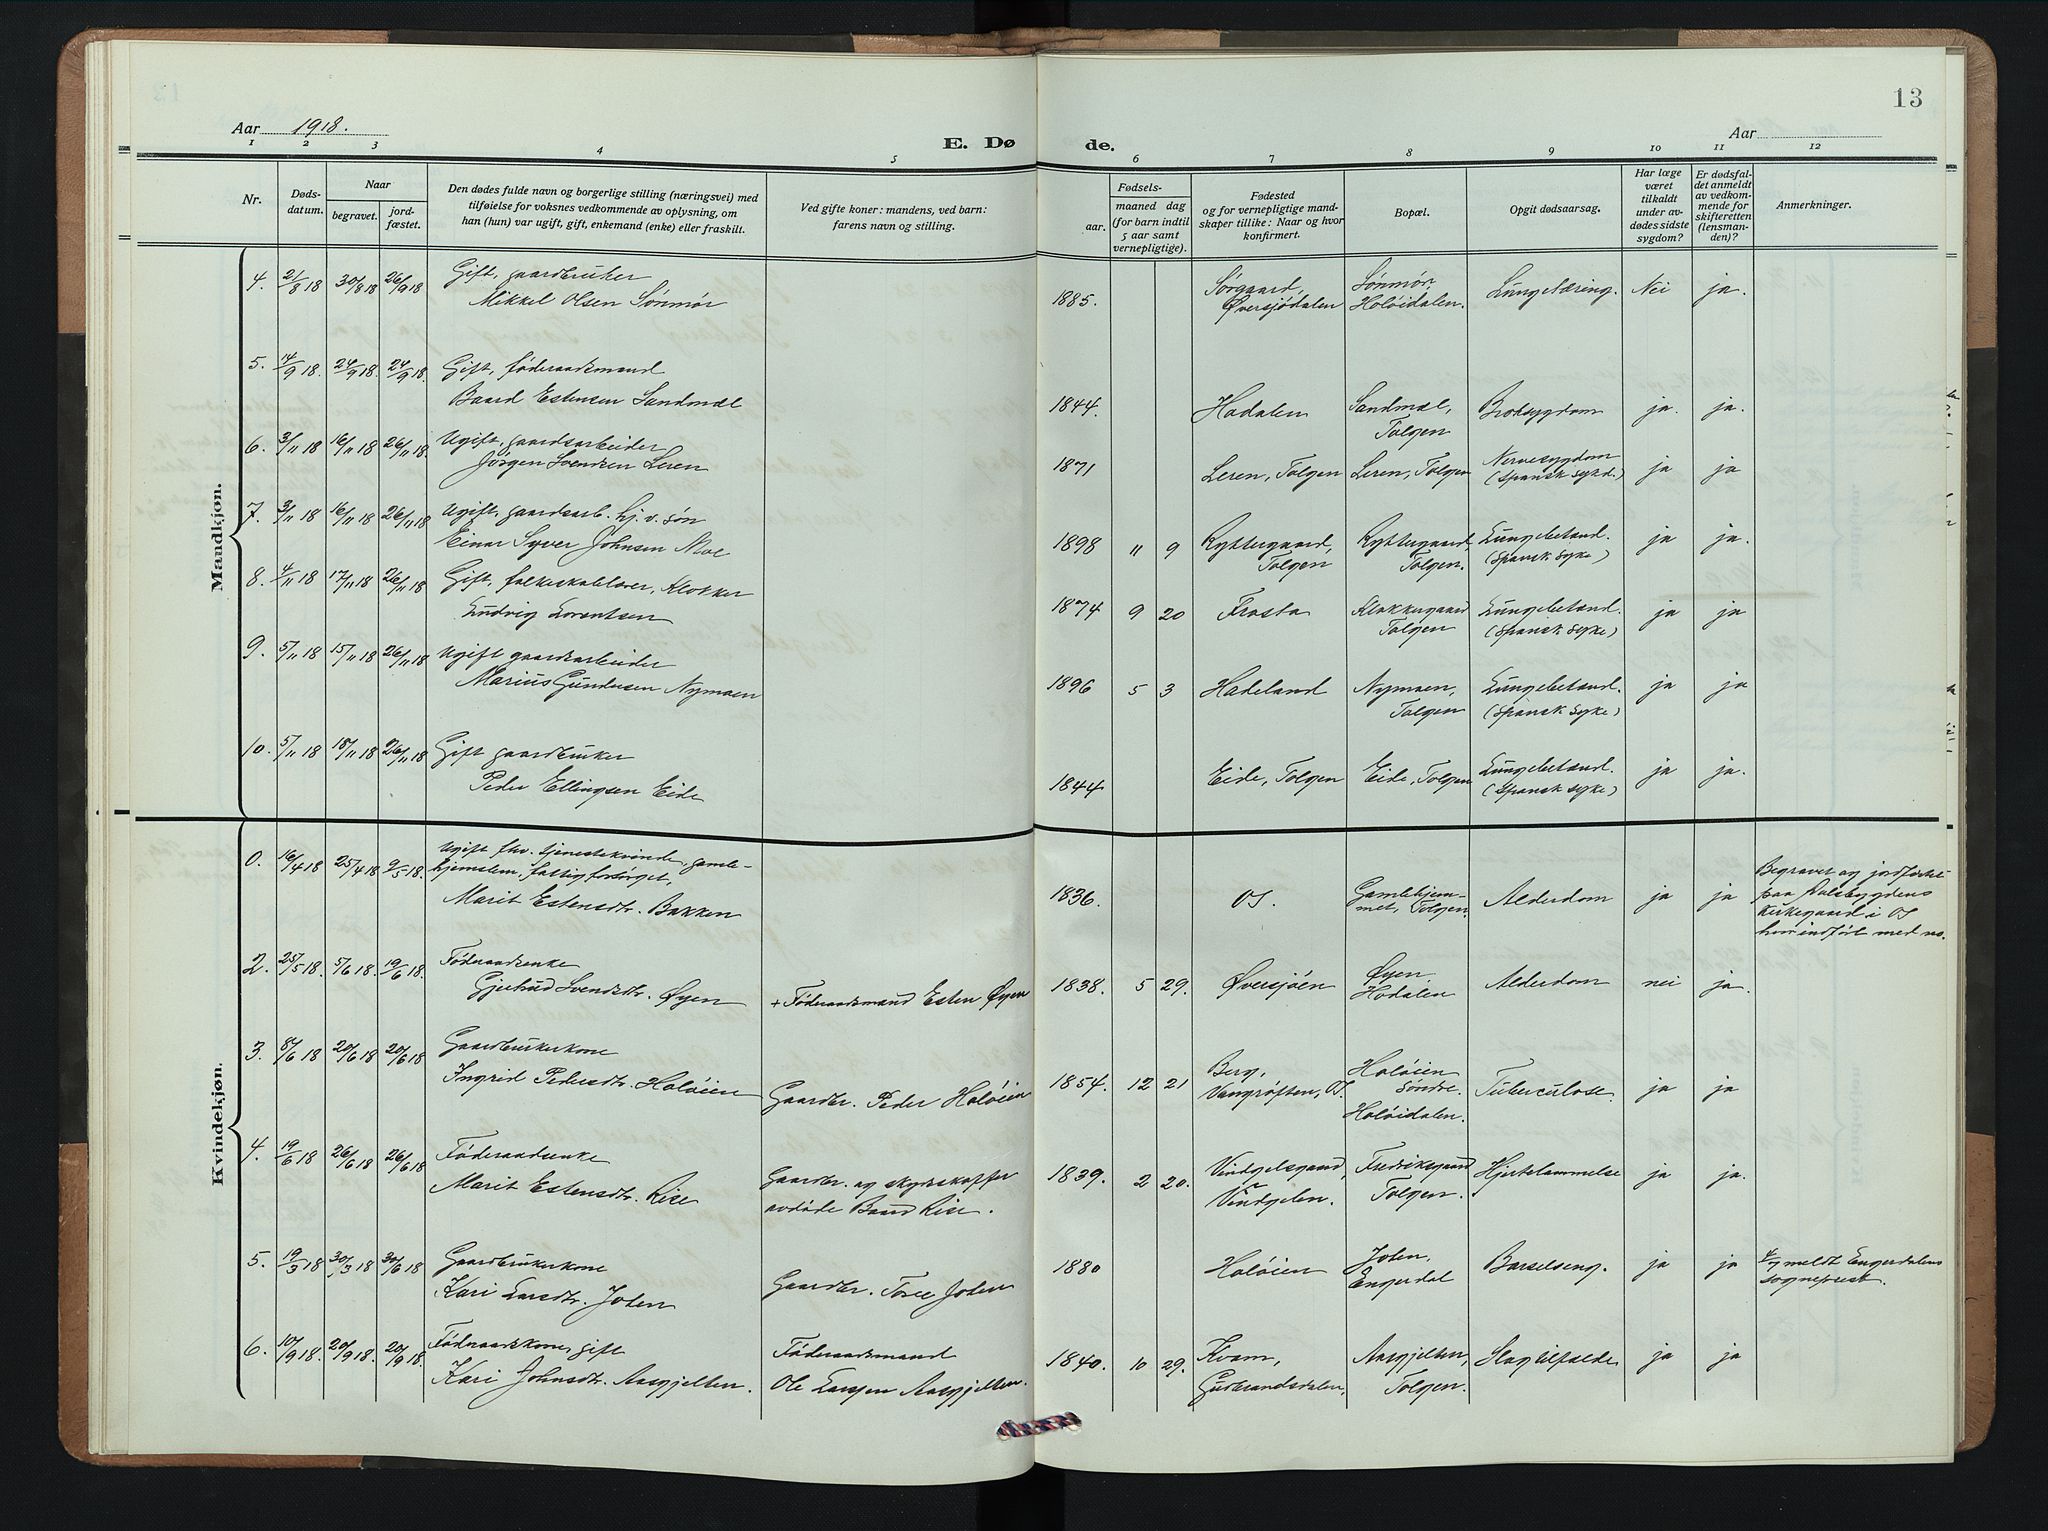 13
Aar 1918. E. Dø de. Aar
1 2 3 4 5 6 7 8 9 10 11 12
Nr. Døds-datum. Naar begravet. jord-fæstet. Den dødes fulde navn og borgerlige stilling (næringsvei) med tilføielse for voksnes vedkommende av oplysning, om han (hun) var ugift, gift, enkemand (enke) eller fraskilt. Ved gifte koner: mandens, ved barn: farens navn og stilling. Fødsels- aar. maaned dag (for barn indtil 5 aar samt vernepligtige). Fødested og for vernepligtige mand-skaper tillike: Naar og hvor konfirmert. Bopæl. Opgit dødsaarsag. Har læge været tilkaldt under av-dødes sidste sygdom? Er dødsfal-det anmeldt av vedkom-mende for skifteretten (lensman-den)? Anmerkninger.
Mandkjøn.
4. 21/8 18 30/8 18 26/9 18 Gift, gaardbruker
Mikkel Olsen Sønmør 1885. Sørgaard, Øversjødalen Sønmør, Holøidalen. Lungetæring. Nei ja.
5. 14/9 18. 24/9 18. 24/9 18. Gift, føderaadsmand
Baard Estensen Sandmæl 1844. Hodalen Sandmæl, Tolgen Broksygdom ja. ja.
6. 3/11 18 16/11 18 26/11 18. Ugift, gaardsarbeider
Jørgen Svendsen Leren 1871 Leren, Tolgen Leren, Tolgen Nervesygdom (Spansk sykd.) ja ja
7. 3/11 18 16/11 18 26/11 18 Ugift, gaardsarb. hj. v. søn
Einar Syver Johnsen Moe 1898 11 9 Ryttergaard, Tolgen Ryttergaard, Tolgen. Lungebetænd. (Spansk syke) ja ja.
8. 4/11 18 17/11 18 26/11 18 Gift, folkeskolelærer, Klokker
Ludvig Lorentsen 1874 9 20 Frosta Klokkergaard Tolgen Lungebetænd. (Spansk syke) ja ja
9. 5/11 18 15/11 18 26/11 18 Ugift gaardsarbeider
Marius Gundersen Nymoen 1896 5 3 Hadeland Nymoen, Tolgen Lungebetænd. (Spansk syke) ja ja
10. 5/11 18 18/11 18 26/11 18 Gift gaardbruker
Peder Ellingsen Eide 1844 Eide, Tolgen Eide, Tolgen Lungebetænd. (Spansk syke) ja ja.
Kvindekjøn.
0. 16/4 18 25/4 18 9/5 18. Ugift fhv. tjenestekvinde, gamle-
hjemslem, fattigforsørget,
Marit Estensdtr. Bakken 1836. Os. Gamlehjem-met, Tolgen Alderdom ja ja Begravet og jordfæstet paa Dalsbygdens kirkegaard i Os hvor indført med no.
2. 25/5 18. 5/6 18. 19/6 18. Føderaadsenke
Gjertrud Svendsdtr. Øyen + Føderaadsmand Esten Øyen 1838. 5 29. Øversjøen Øyen Hodalen Alderdom nei ja.
3. 8/6 18 20/6 18 20/6 18 Gaardbrukerkone
Ingrid Pedersdtr. Holøien Gaardbr. Peder Holøien 1854. 12 21 Berg, Vangrøften, Os. Holøien Søndre. Holøidalen. Tuberculose. ja ja
4. 19/6 18 26/6 18 26/6 18 Føderaadsenke
Marit Estensdtr. Rise Gaardbr. og skydsskaffer avdøde Baard Rise. 1839. 2 20. Vingelsgaard, Vingelen. Fredriksgaard Tolgen. Hjertelammelse ja ja.
5. 19/3 18 30/3 18 30/6 18 Gaardbrukerkone
Kari Larsdtr. Joten Gaardbr. Tore Joten 1880 Holøien Joten, Engerdal Barselseng. ja ja 4/7 meldt Engerdalens sogneprest.
6. 10/9 18. 20/9 18. 20/9 18. Føderaadskone, gift
Kari Johnsdtr. Aasgjelten. Føderaadsmand Ole Larsen Aasgjelten. 1840. 10 29. Kvam, Gudbrandsdalen, Aasgjelten, Tolgen. Slagtilfælde ja ja